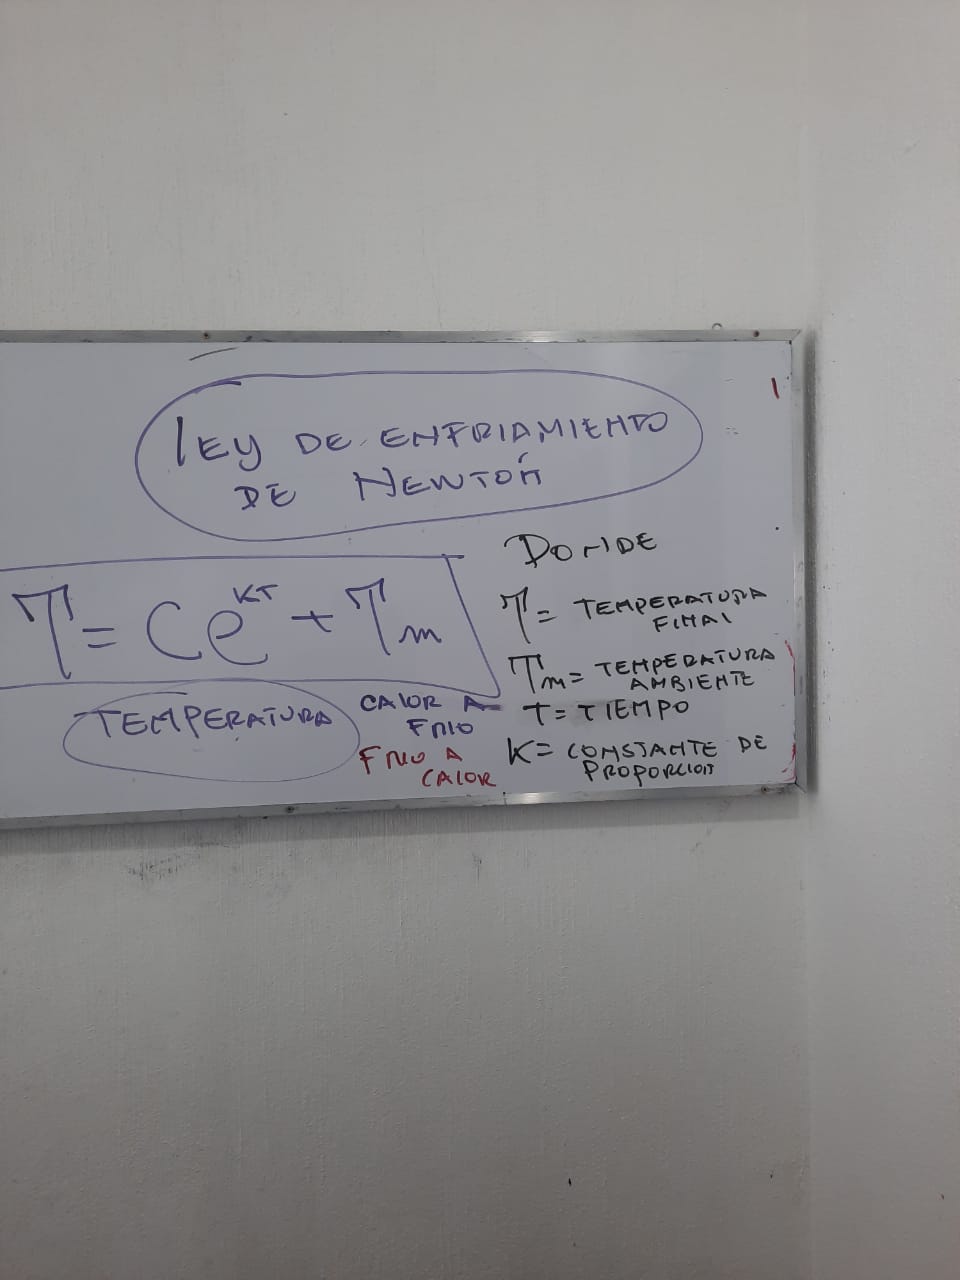 LEY DE ENFRIAMIENTO
DE NEWTON
T = Ce^KT + Tm
TEMPERATURA
CALOR A
FRIO
FRIO A
CALOR
DONDE
T = TEMPERATURA
FINAL
Tm = TEMPERATURA
AMBIENTE
T = TIEMPO
K = CONSTANTE DE
PROPORCION